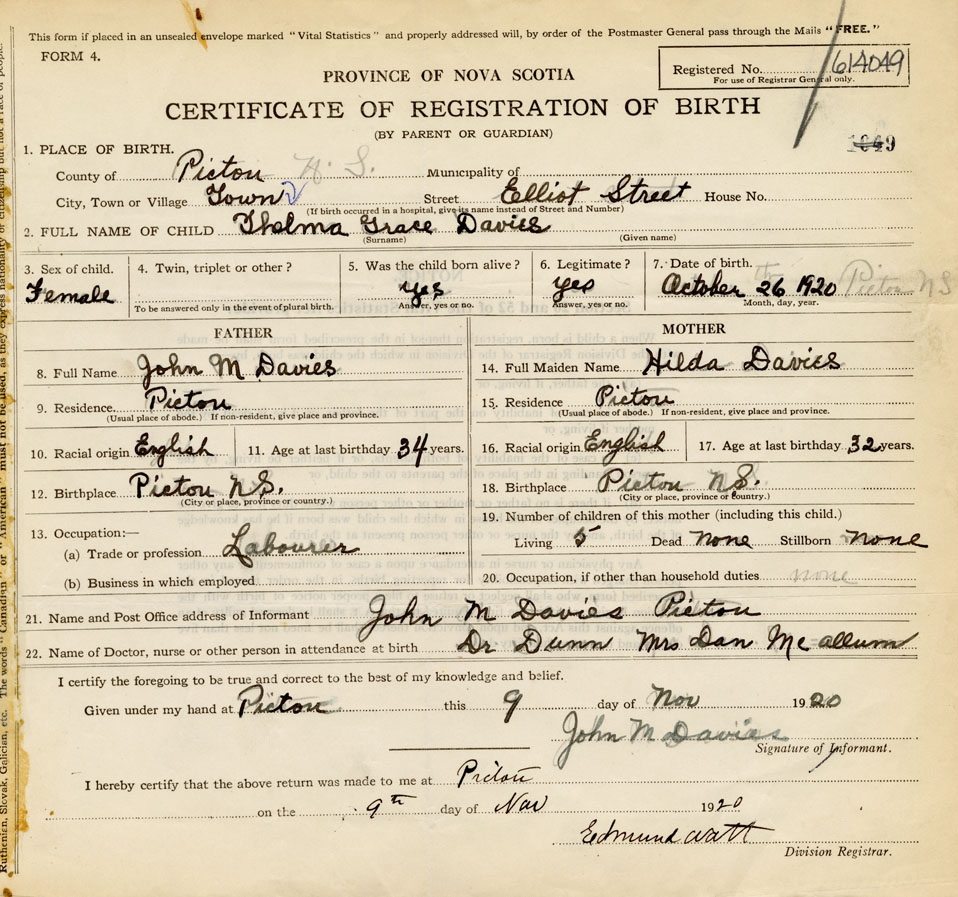 This form if placed in an unsealed envelope marked "Vital Statistics" and properly addressed will, by order of the Postmaster General pass through the Mails "FREE."
FORM 4.
Registered No. 614049
For use of Registrar General only.
PROVINCE OF NOVA SCOTIA
CERTIFICATE OF REGISTRATION OF BIRTH
(BY PARENT OR GUARDIAN)
1049
1. PLACE OF BIRTH.
County of Pictou N. S. Municipality of
City, Town or Village Town Street Elliot Street House No.
(If birth occurred in a hospital, give its name instead of Street and Number)
2. FULL NAME OF CHILD Thelma Grace Davies
(Surname) (Given name)
3. Sex of child. 4. Twin, triplet or other? 5. Was the child born alive? 6. Legitimate? 7. Date of birth.
Female yes yes October 26th 1920 Pictou NS
To be answered only in the event of plural birth. Answer, yes or no. Answer, yes or no. Month, day, year.
FATHER MOTHER
8. Full Name John M Davies 14. Full Maiden Name Hilda Davies
9. Residence. Pictou 15. Residence Pictou
(Usual place of abode.) If non-resident, give place and province. (Usual place of abode.) If non-resident, give place and province.
10. Racial origin English 11. Age at last birthday 34 years. 16. Racial origin English 17. Age at last birthday 32 years.
12. Birthplace Pictou N.S. 18. Birthplace Pictou N.S.
(City or place, province or country.) (City or place, province or country.)
13. Occupation:— 19. Number of children of this mother (including this child.)
(a) Trade or profession Labourer Living 5 Dead none Stillborn none
(b) Business in which employed 20. Occupation, if other than household duties none
21. Name and Post Office address of Informant John M Davies Pictou
22. Name of Doctor, nurse or other person in attendance at birth Dr Dunn Mrs Dan Mc allum
I certify the foregoing to be true and correct to the best of my knowledge and belief.
Given under my hand at Pictou this 9 day of Nov 1920
John M Davies
Signature of Informant.
I hereby certify that the above return was made to me at Pictou
on the 9th day of Nov 1920
Edmund Watt
Division Registrar.
Ruthenian, Slovak, Galician, etc. The words "Canadian" or "American" must not be used, as they express nationality or citizenship but not a race of people.